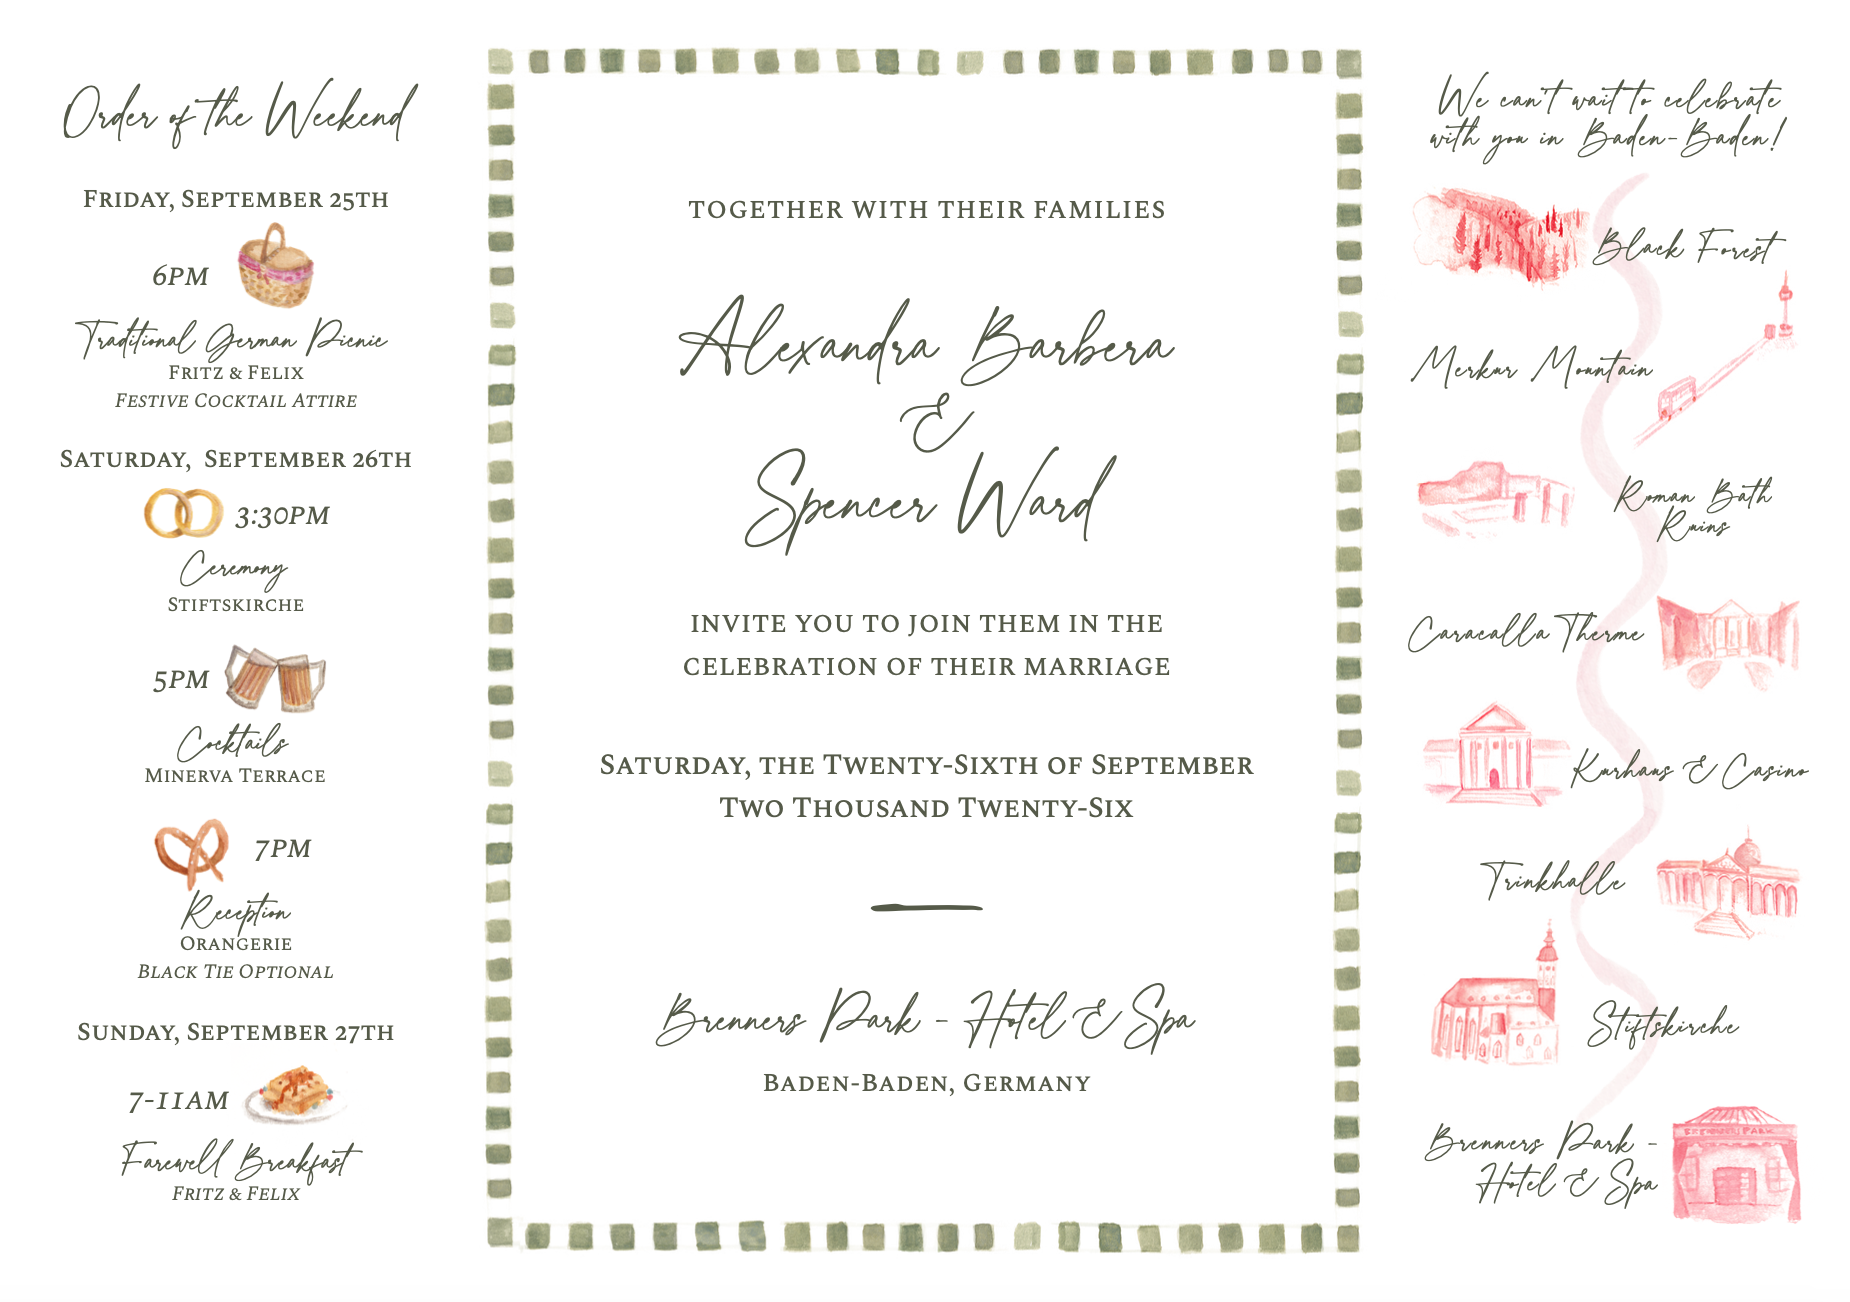 Order of the Weekend
Friday, September 25th
6PM
Traditional German Picnic
Fritz & Felix
Festive Cocktail Attire
Saturday, September 26th
3:30PM
Ceremony
Stiftskirche
5PM
Cocktails
Minerva Terrace
7PM
Reception
Orangerie
Black Tie Optional
Sunday, September 27th
7-11AM
Farewell Breakfast
Fritz & Felix
TOGETHER WITH THEIR FAMILIES
Alexandra Barbera
&
Spencer Ward
INVITE YOU TO JOIN THEM IN THE
CELEBRATION OF THEIR MARRIAGE
Saturday, the Twenty-Sixth of September
Two Thousand Twenty-Six
Brenners Park - Hotel & Spa
Baden-Baden, Germany
We can't wait to celebrate
with you in Baden-Baden!
Black Forest
Merkur Mountain
Roman Bath
Ruins
Caracalla Therme
Kurhaus & Casino
Trinkhalle
Stiftskirche
Brenners Park -
Hotel & Spa
BRENNERS PARK